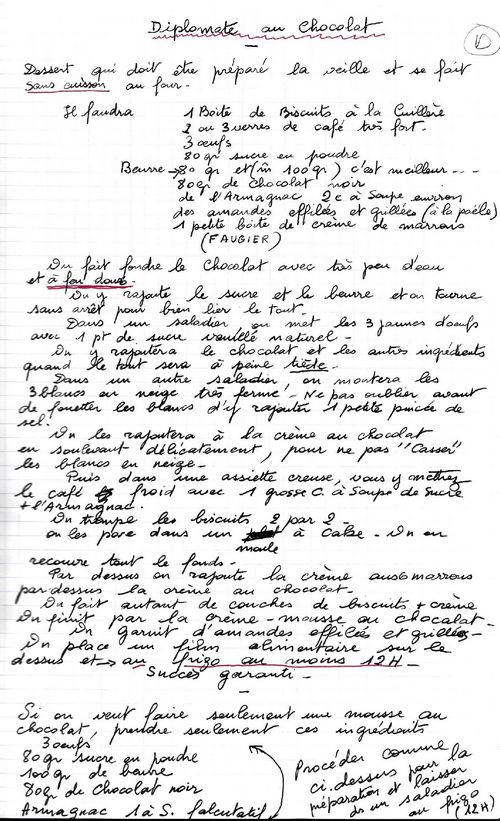 Diplomate au Chocolat
Dessert qui doit être préparé la veille et se fait
sans cuisson au four -
Il faudra
1 Boite de Biscuits à la Cuillère
2 ou 3 verres de café très fort.
3 œufs
80 gr sucre en poudre
Beurre → 80 gr et (m̂ 100 gr) c'est meilleur - - -
80 gr de Chocolat noir
de l'Armagnac 2c à Soupe environ
des amandes effilées et grillées (à la poële)
1 petite boite de crème de marrons
(FAUGIER)
On fait fondre le Chocolat avec très peu d'eau
et à feu doux.
On y rajoute le sucre et le beurre et on tourne
sans arrêt pour bien lier le tout.
Dans un saladier on met les 3 jaunes d'œufs
avec 1 pt de sucre vanillé naturel -
On y rajoutera le chocolat et les autres ingrédients
quand le tout sera à peine tiède -
Dans un autre saladier, on montera les
3 blancs en neige très ferme - Ne pas oublier avant
de fouetter les blancs d'y rajouter 1 petite pincée de
sel.
On les rajoutera à la crème au chocolat
en soulevant délicatement, pour ne pas "Casser"
les blancs en neige -
Puis dans une assiette creuse, vous y mettrez
le café froid avec 1 grosse C. à Soupe de Sucre
+ l'Armagnac.
On trempe les biscuits 2 par 2 -
on les pose dans un moule à Cake - On en
recouvre tout le fond -
Par dessus on rajoute la crème aux marrons
par dessus la crème au chocolat -
On fait autant de couches de biscuits + crème
On finit par la crème - mousse au chocolat -
On garnit d'amandes effilées et grillées -
On place un film alimentaire sur le
dessus et → au frigo au moins 12H -
Succès garanti -
Si on veut faire seulement une mousse au
chocolat, prendre seulement ces ingrédients
3 œufs
80 gr sucre en poudre
100 gr de beurre
80 gr de Chocolat noir
Armagnac 1 à S. falcutatif
Procéder comme
ci.dessus pour la
préparation et laisser
ds un saladier
au frigo
(12H)